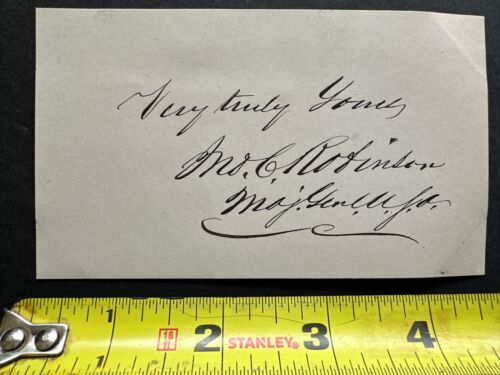 Very truly Yours,
Jno. C. Robinson
Maj. Genl. U.S.A.
1 16 2 STANLEY® 3 4